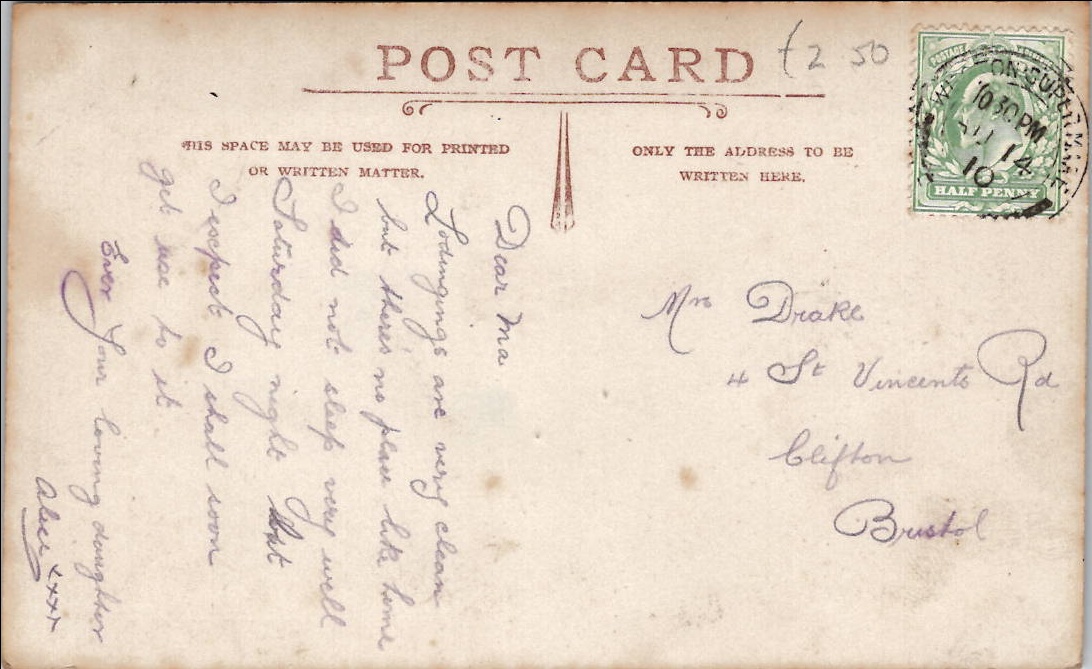 POST CARD
£2 50
THIS SPACE MAY BE USED FOR PRINTED
OR WRITTEN MATTER.
ONLY THE ADDRESS TO BE
WRITTEN HERE.
WESTON-SUPER-MARE
10 30 PM
14
10
HALF PENNY
Dear Ma
Lodingings are very clean
but there's no place like home
I did not sleep very well
Saturday night but
I expect I shall soon
get use to it
Ever Your loving daughter
Alice xxxx
Mrs Drake
4 St Vincents Rd
Clifton
Bristol